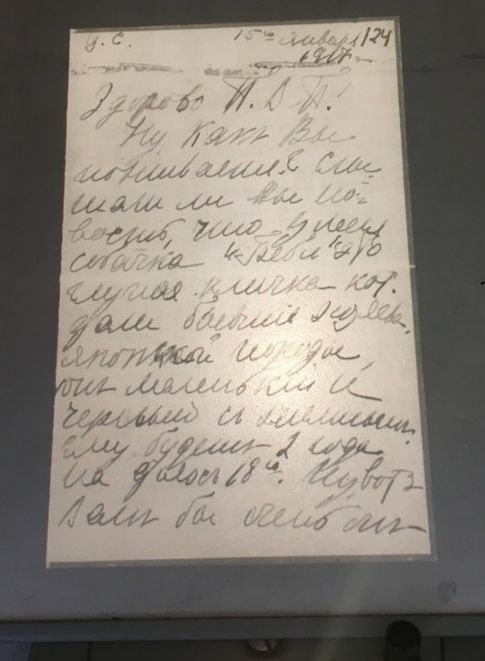 Ц. С. 15го января /24
1917 г.
Здорово П. В. П.!
Ну, какъ Вы
поживаете? Слы-
шали ли Вы но-
вость, что у меня
собачка "Беби" это
глупая кличка кот.
дали бывшие хозяева.
японской породы,
онъ маленькій и
черный съ
ему будетъ 2 года
на 18го. Ну, вотъ
Вамъ бы